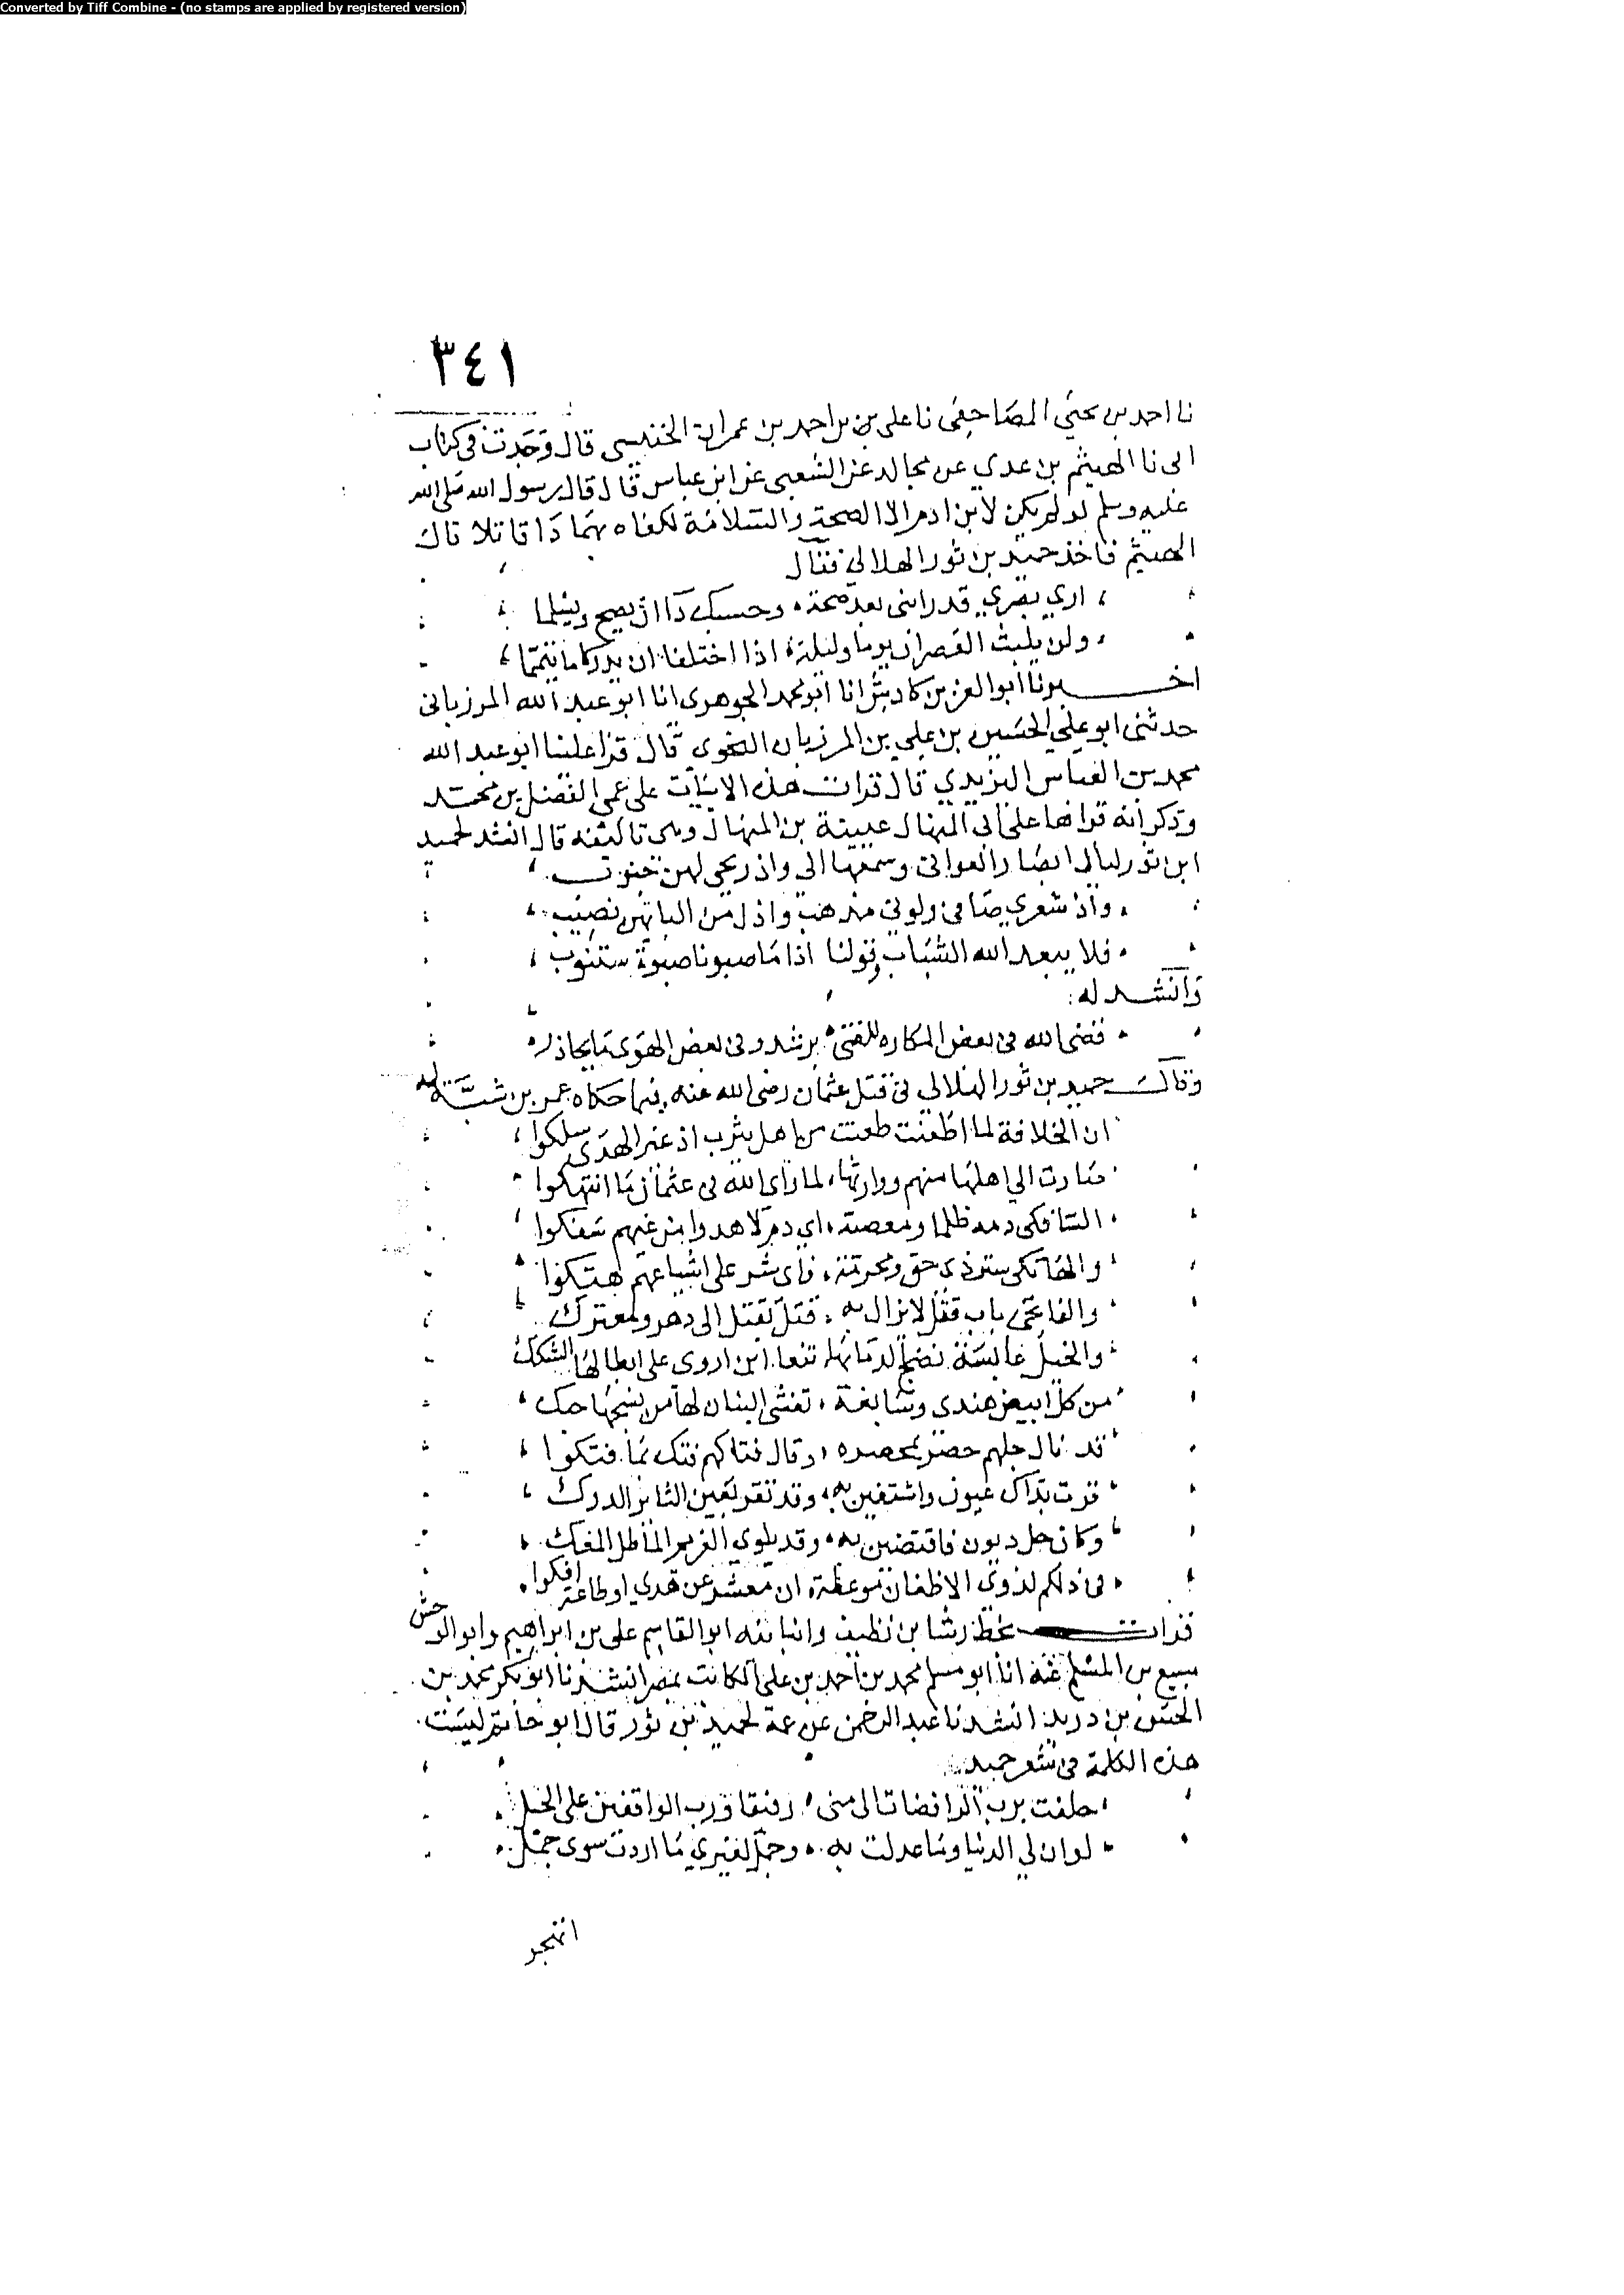 Converted by Tiff Combine - (no stamps are applied by registered version)
٣٤١
نا احمد بن يحيي المصاحفى نا على بن احمد بن عمران قال وجدت فى كتاب
ابى نا الهيثم بن عدي عن مجالد عن الشعبى عن ابن عباس قال قال رسول الله صلى الله
عليه وسلم لو لم يكن لابن ادم الا الصحة والسلامة لكفاه بهما دا قاتلا قال
الهيثم فاخذ حميد بن ثور الهلالي فقال
اري بصري قد رابنى بعد صحة وحسبك دآا ان يصح ويسلما
ولن يلبث العصران يوما وليلة اذا اختلفا ان يدركا ما تيمما
اخبرنا ابو العز بن كادش انا ابو محمد الجوهرى انا ابو عبد الله المرزبانى
حدثنى ابو علي الحسين بن علي بن المرزبان النحوى قال قرا علينا ابو عبد الله
محمد بن العباس اليزيدي قال قرات هذه الابيات على عمى الفضل بن محمد
وذكر انه قراها على ابى المنهال عيينة بن المنهال قال انشد لحميد
ابن ثور ليالى ابصار الغوانى وسمعها الى واذ ريحى لهن جنوب
واذ شعري ضافى ولونى مذهب واذ لى من البابهن نصيب
فلا يبعد الله الشباب وقولنا اذا ما صبونا صبوة سنتوب
وانشد له
قضى الله فى بعض المكاره للفتى برشد وفى بعض الهوى ما يحاذر
وقال حميد بن ثور الهلالي فى قتل عثمان رضى الله عنه فيما حكاه عمر بن شبة له
ان الخلافة لما اظعنت ظعنت من اهل يثرب اذ غير الهدى سلكوا
صارت الي اهلها منهم ووارثها لما راى الله فى عثمان ما انتهكوا
السافكى دمه ظلما ومعصية اي دم لا هدوا من غيهم سفكوا
والهاتكى ستر ذى حق ومحرمة فاى شر على اشياعهم هتكوا
والفاتحى باب قتل لا يزال به قتل بقتل الى دهر ومعترك
والخيل عابسة نضح الدما بها تنعا ابن اروى على ابطالها الشكك
من كل ابيض هندى وسابغة تغشى البنان لها من نسجها حبك
قد نال جلهم حصر بمحصره وقال فتاكهم فتك بما فتكوا
قرت بذاك عيون واشتفين به وقد تقر بعين الثائر الدرك
وكان حل ديون فاقتضين به وقد يلوي الغريم الماطل المعك
فى ذلكم لذوي الاظغان موعظة ان معشر عن هدي او طاعة افكوا
قرات بخط رشا بن نظيف وانبانيه ابو القاسم على بن ابراهيم وابو الوحش
سبيع بن المسلم عنه انا ابو مسلم محمد بن احمد بن على الكاتب بمصر انشدنا ابو بكر محمد بن
الحسن بن دريد انشدنا عبد الرحمن عن عمه لحميد بن ثور قال ابو حاتم ليست
هذه الكلمة فى شعر حميد
حلفت برب الراقصات الى منى رفيقا ورب الواقفين على الحبل
لو ان لي الدنيا وما عدلت به وجمل لغيري ما اردت سوى جمل